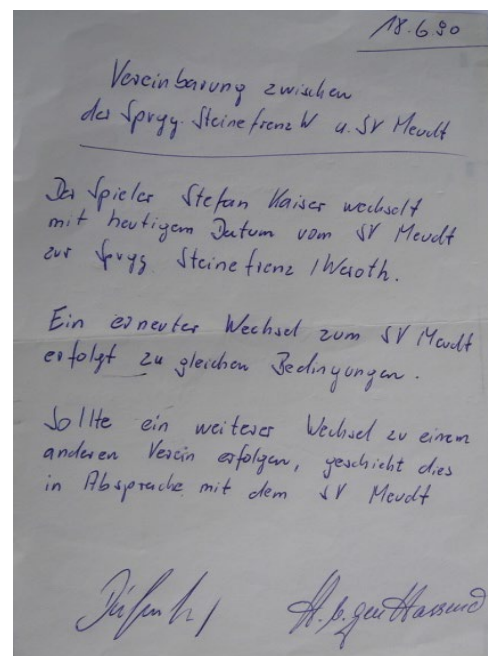 18.6.90
Vereinbarung zwischen
der Spvgg. Steinefrenz W u. SV Meudt
Der Spieler Stefan Kaiser wechselt
mit heutigem Datum vom SV Meudt
zur Spvgg. Steinefrenz / Weroth.
Ein erneuter Wechsel zum SV Meudt
erfolgt zu gleichen Bedingungen.
Sollte ein weiterer Wechsel zu einem
anderen Verein erfolgen, geschieht dies
in Absprache mit dem SV Meudt